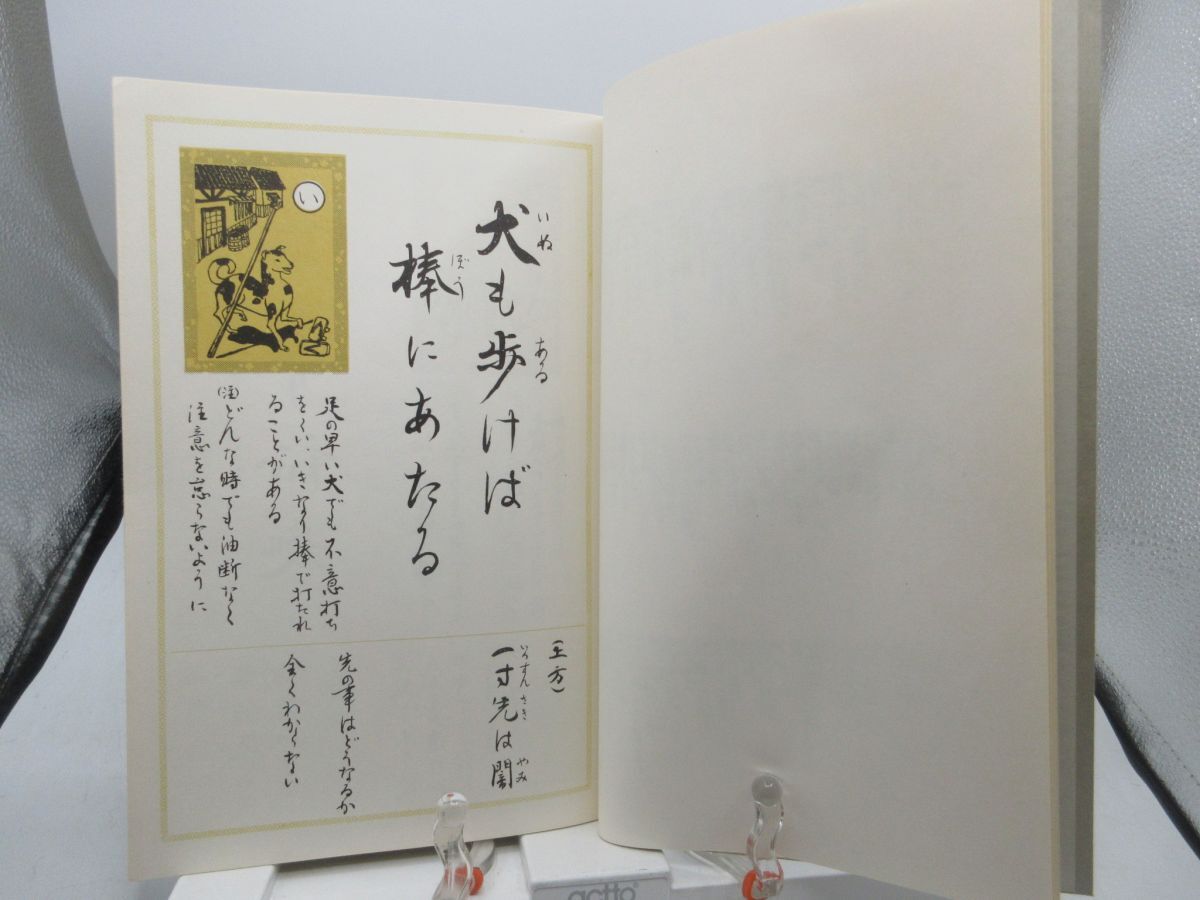 犬も歩けば
いぬ
ある
棒にあたる
ぼう
い
足の早い犬でも不意打ち
をくい、いきなり棒で打たれ
ることがある
(注)どんな時でも油断なく
注意を怠らないように
一寸先は闇
いっすんさき
やみ
先の事はどうなるか
全くわからない
actto